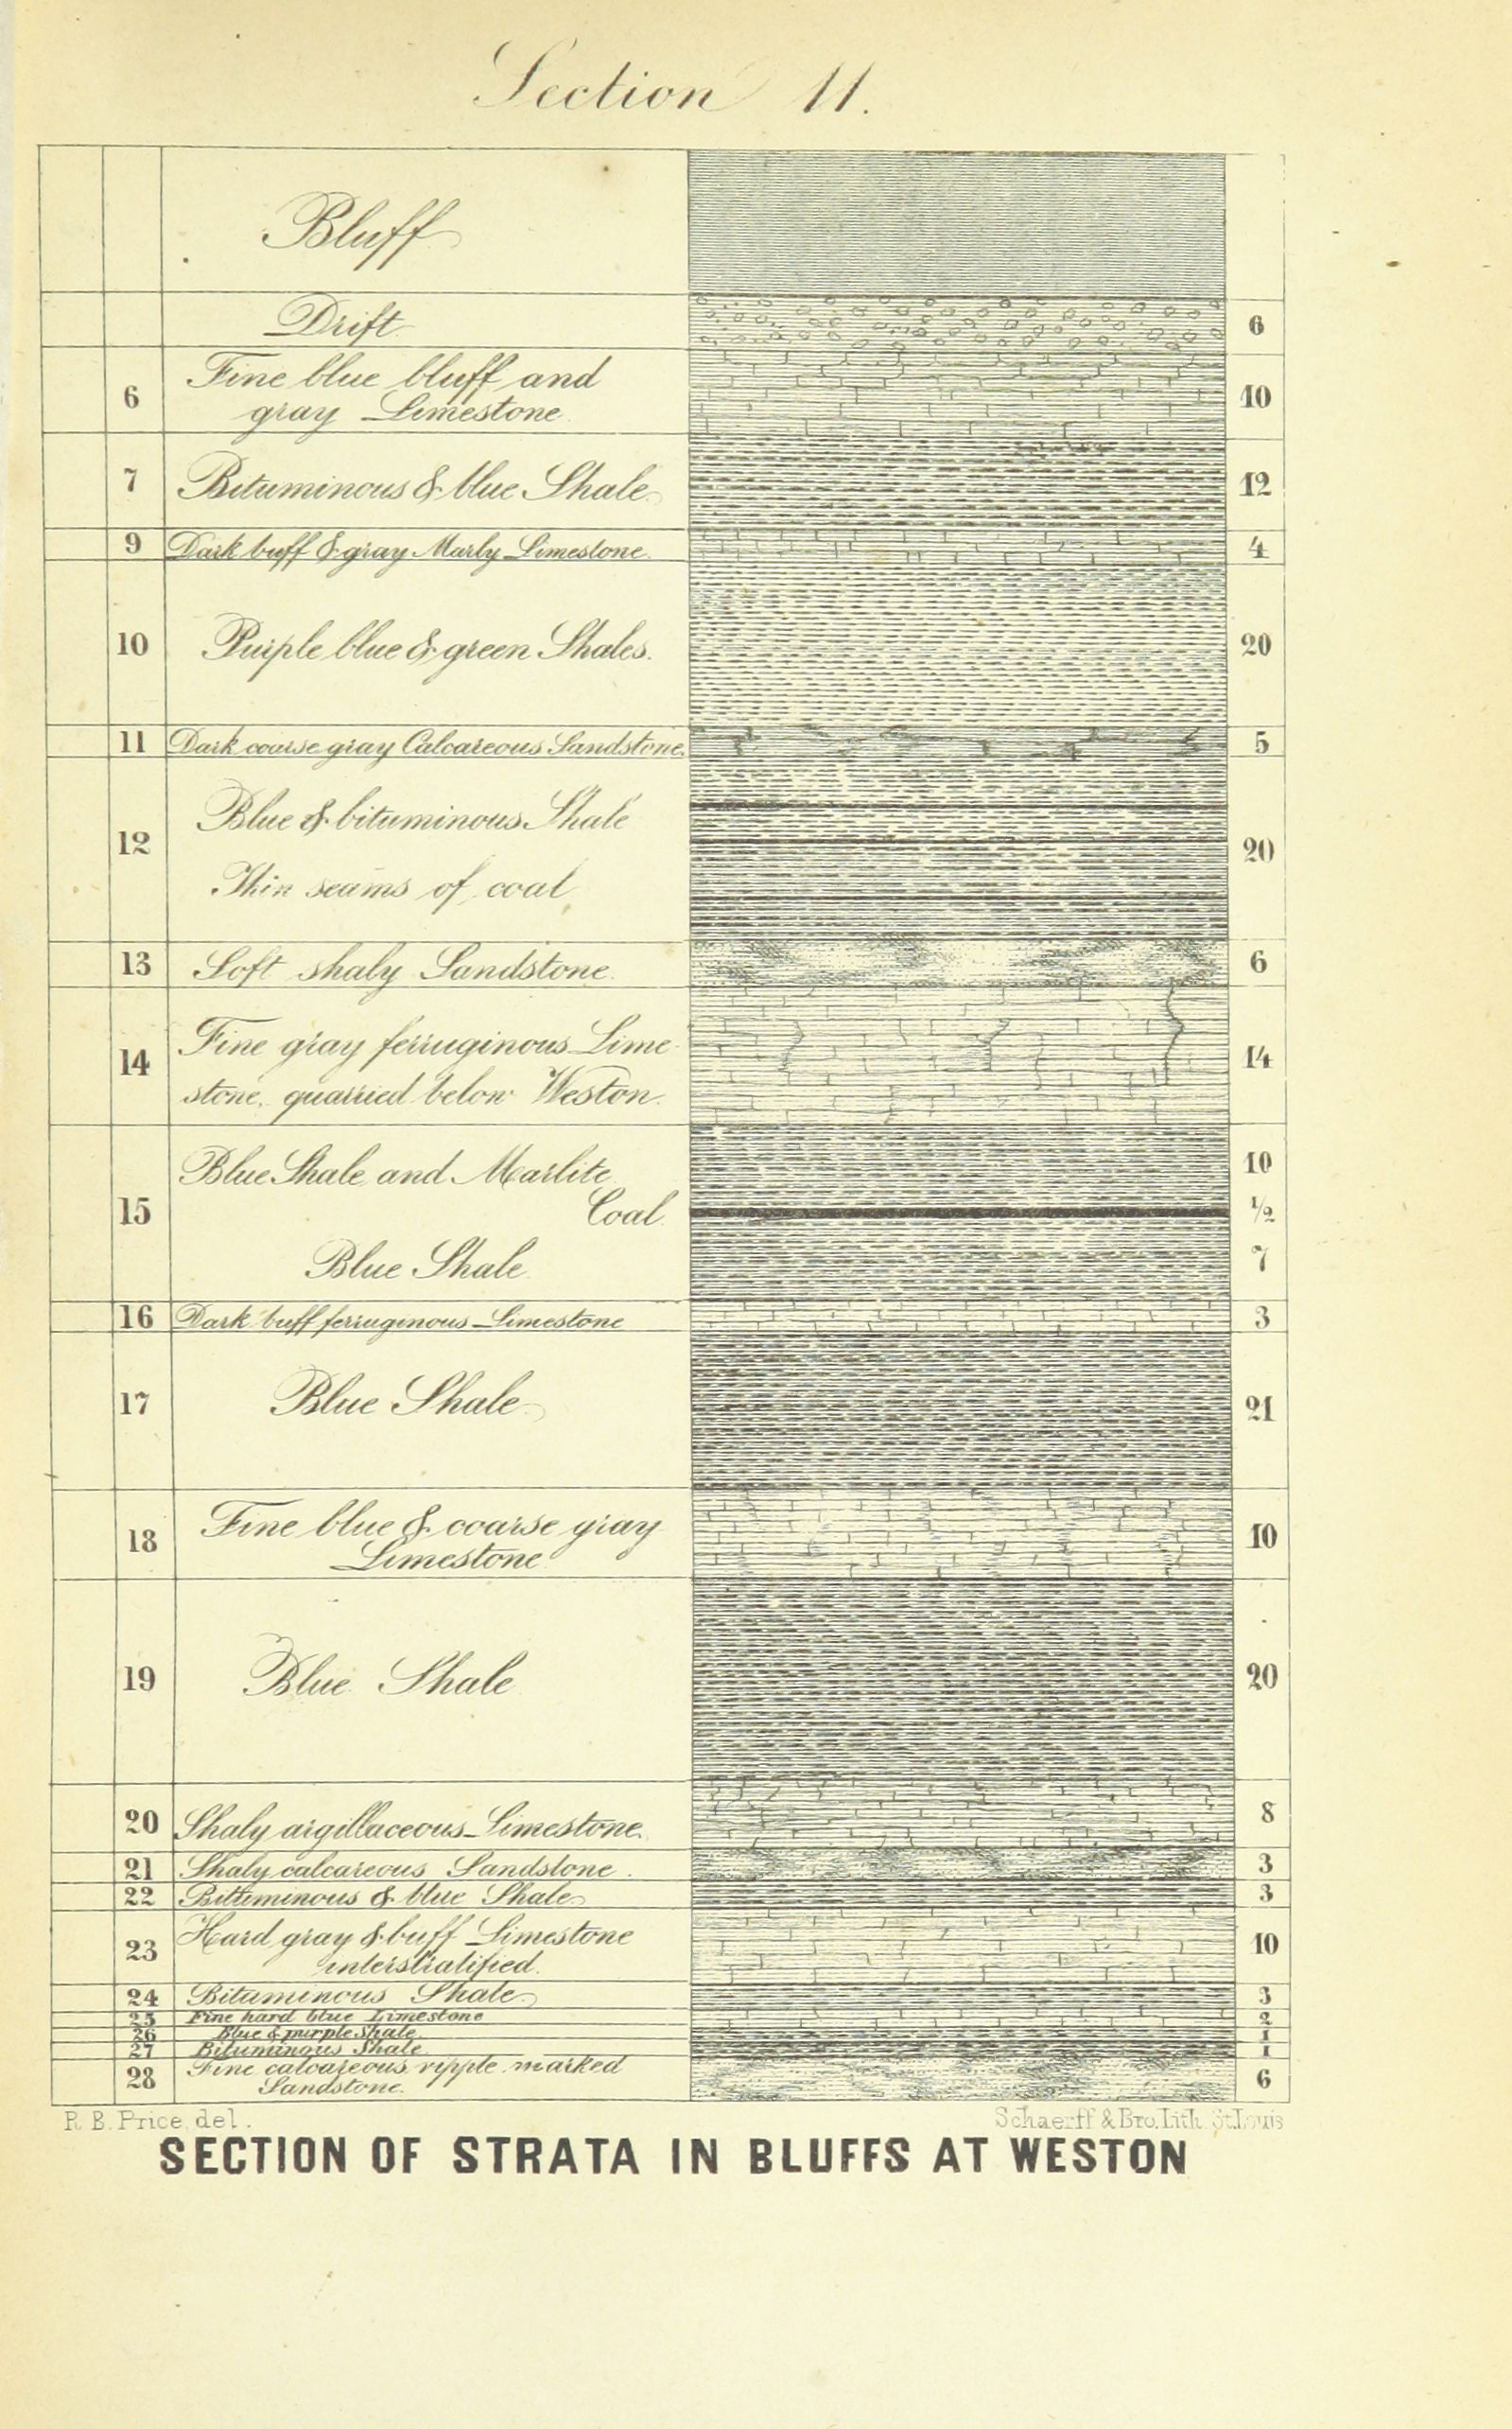 Section 11.
Bluff
Drift 6
6 Fine blue bluff and
gray Limestone 10
7 Bituminous & blue Shale 12
9 Dark buff & gray Marly Limestone. 4
10 Purple blue & green Shales. 20
11 Dark coarse gray Calcareous Sandstone. 5
12 Blue & bituminous Shale
Thin seams of coal 20
13 Soft shaly Sandstone. 6
14 Fine gray ferruginous Lime-
stone, quarried below Weston. 14
15 Blue Shale and Marlite 10
Coal 1/2
Blue Shale 7
16 Dark buff ferruginous Limestone 3
17 Blue Shale 21
18 Fine blue & coarse gray
Limestone 10
19 Blue Shale 20
20 Shaly argillaceous Limestone. 8
21 Shaly calcareous Sandstone. 3
22 Bituminous & blue Shale 3
23 Hard gray & buff Limestone
interstratified. 10
24 Bituminous Shale 3
25 Fine hard blue Limestone 2
26 Blue & purple Shale 1
27 Bituminous Shale 1
28 Fine calcareous ripple marked
Sandstone. 6
R. B. Price, del.
Schaerff & Bro. Lith. St. Louis
SECTION OF STRATA IN BLUFFS AT WESTON